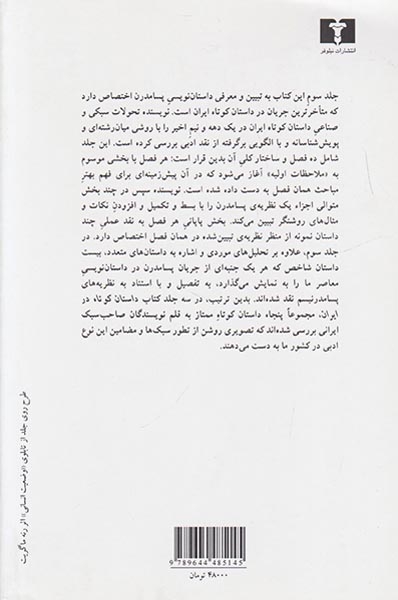 انتشارات نیلوفر
جلد سوم این کتاب به تبیین و معرفی داستان‌نویسیِ پسامدرن اختصاص دارد
که متأخرترین جریان در داستان کوتاه ایران است. نویسنده تحولات سبکی و
صناعیِ داستان کوتاه ایران در یک دهه و نیمِ اخیر را با روشی میان‌رشته‌ای و
پویش‌شناسانه و با الگویی برگرفته از نقد ادبی بررسی کرده است. این جلد
شامل ده فصل و ساختار کلی آن بدین قرار است: هر فصل با بخشی موسوم
به «ملاحظات اولیه» آغاز می‌شود که در آن پیش‌زمینه‌ای برای فهم بهترِ
مباحث همان فصل به دست داده شده است. نویسنده سپس در چند بخشِ
متوالی اجزاء یک نظریه‌ی پسامدرن را با بسط و تکمیل و افزودنِ نکات و
مثال‌های روشنگر تبیین می‌کند. بخش پایانیِ هر فصل به نقد عملیِ چند
داستان نمونه از منظر نظریه‌ی تبیین‌شده در همان فصل اختصاص دارد. در
جلد سوم، علاوه بر تحلیل‌های موردی و اشاره به داستان‌های متعدد، بیست
داستان شاخص که هر یک جنبه‌ای از جریان پسامدرن در داستان‌نویسیِ
معاصر ما را به نمایش می‌گذارد، به تفصیل و با استناد به نظریه‌های
پسامدرنیسم نقد شده‌اند. بدین ترتیب، در سه جلد کتاب داستان کوتاه در
ایران، مجموعاً پنجاه داستان کوتاهِ ممتاز به قلم نویسندگان صاحب‌سبک
ایرانی بررسی شده‌اند که تصویری روشن از تطور سبک‌ها و مضامین این نوع
ادبی در کشور ما به دست می‌دهند.
طرح روی جلد از تابلوی «وضعیت انسانی» اثر رنه ماگریت
9 789644 485145
۴۸۰۰۰ تومان